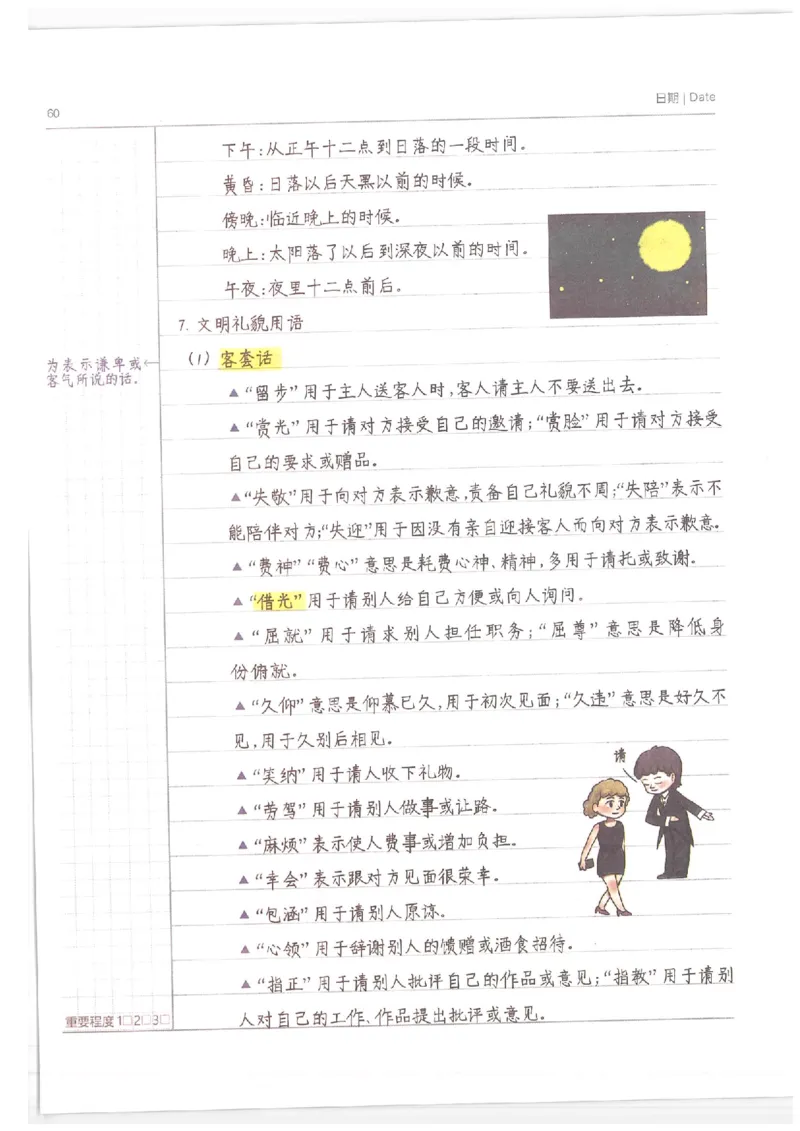 日期 | Date
60
下午:从正午十二点到日落的一段时间。
黄昏:日落以后天黑以前的时候。
傍晚:临近晚上的时候。
晚上:太阳落了以后到深夜以前的时间。
午夜:夜里十二点前后。
7. 文明礼貌用语
(1) 客套话
为表示谦卑或←
客气所说的话.
▲“留步”用于主人送客人时,客人请主人不要送出去。
▲“赏光”用于请对方接受自己的邀请;“赏脸”用于请对方接受
自己的要求或赠品。
▲“失敬”用于向对方表示歉意,责备自己礼貌不周;“失陪”表示不
能陪伴对方;“失迎”用于因没有亲自迎接客人而向对方表示歉意。
▲“费神”“费心”意思是耗费心神、精神,多用于请托或致谢。
▲“借光”用于请别人给自己方便或向人询问。
▲“屈就”用于请求别人担任职务;“屈尊”意思是降低身
份俯就。
▲“久仰”意思是仰慕已久,用于初次见面;“久违”意思是好久不
见,用于久别后相见。
请
▲“笑纳”用于请人收下礼物。
▲“劳驾”用于请别人做事或让路。
▲“麻烦”表示使人费事或增加负担。
▲“幸会”表示跟对方见面很荣幸。
▲“包涵”用于请别人原谅。
▲“心领”用于辞谢别人的馈赠或酒食招待。
▲“指正”用于请别人批评自己的作品或意见;“指教”用于请别
人对自己的工作、作品提出批评或意见。
重要程度 1□2□3□